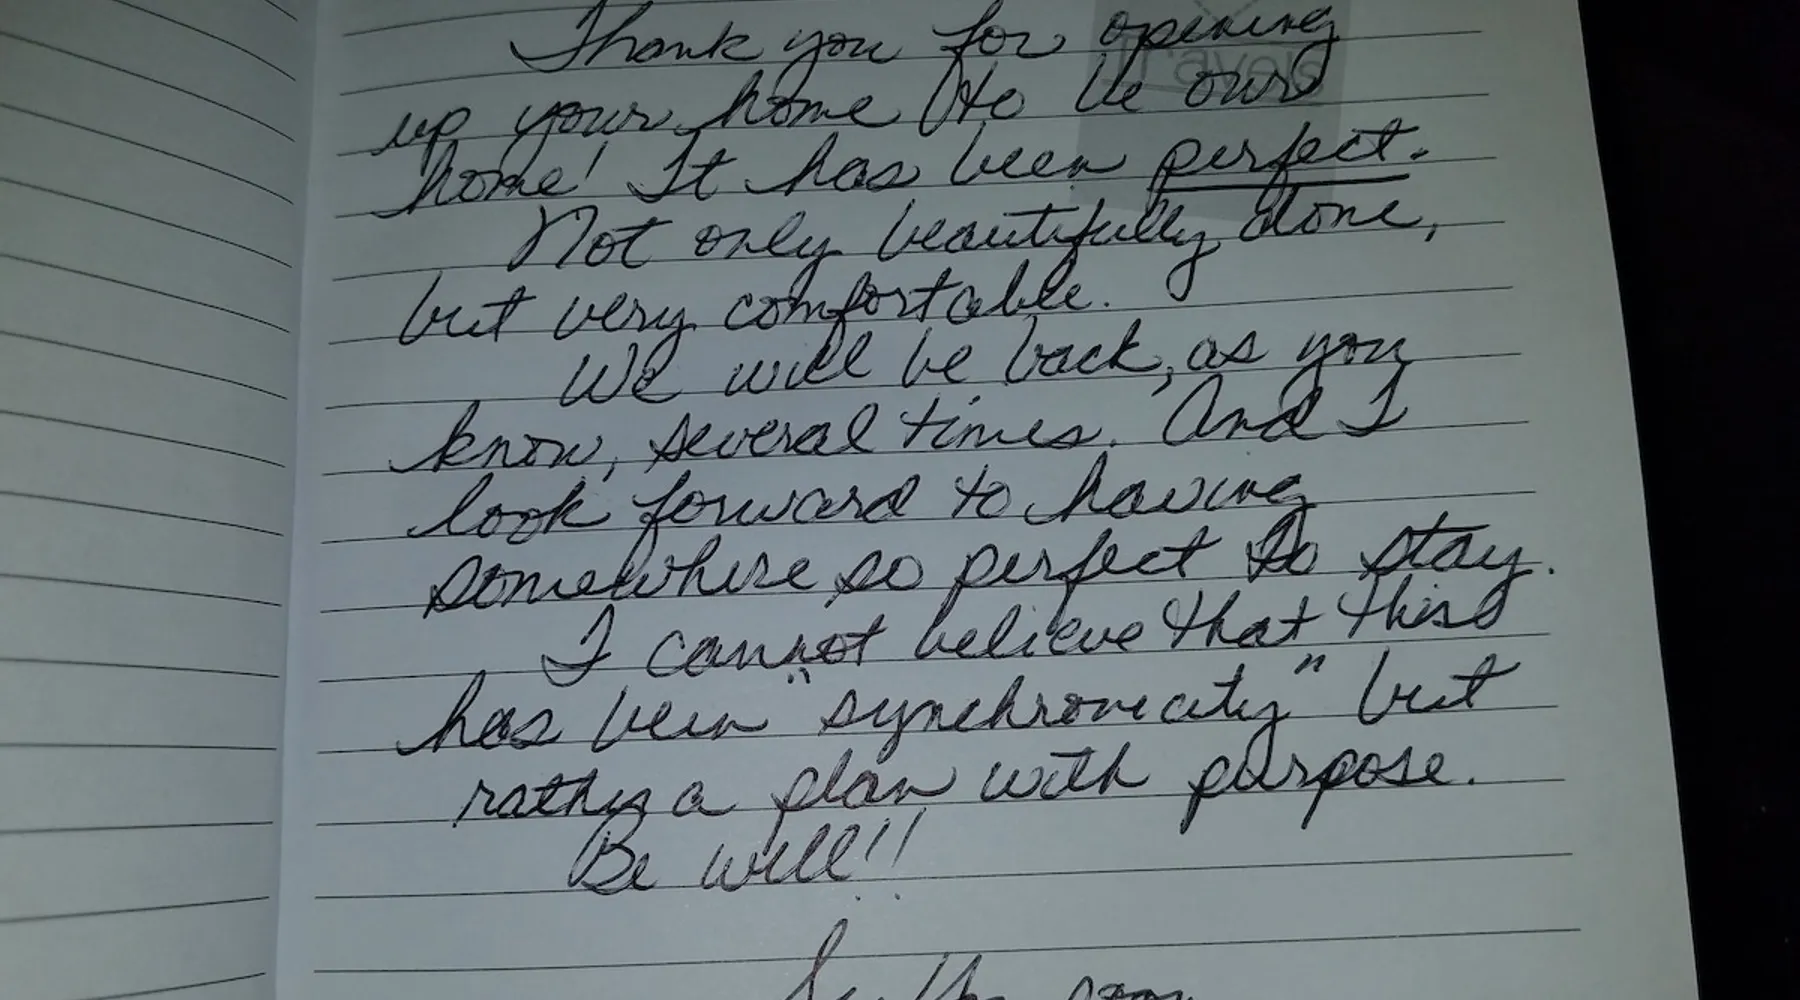 Thank you for opening
up your home to be our
home! It has been perfect.
Not only beautifully done,
but very comfortable.
We will be back, as you
know, several times. And I
look forward to having
somewhere so perfect to stay.
I cannot believe that this
has been "synchronicity" but
rather a plan with purpose.
Be well!!